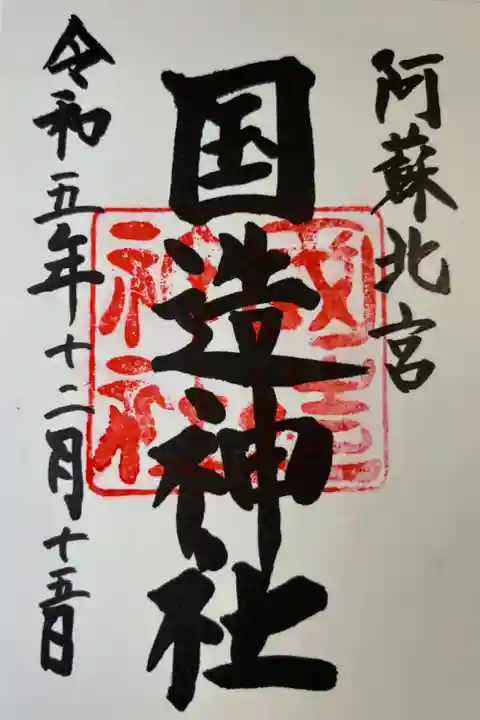 阿蘇北宮
国造神社
令和五年十二月十五日
國造
神社